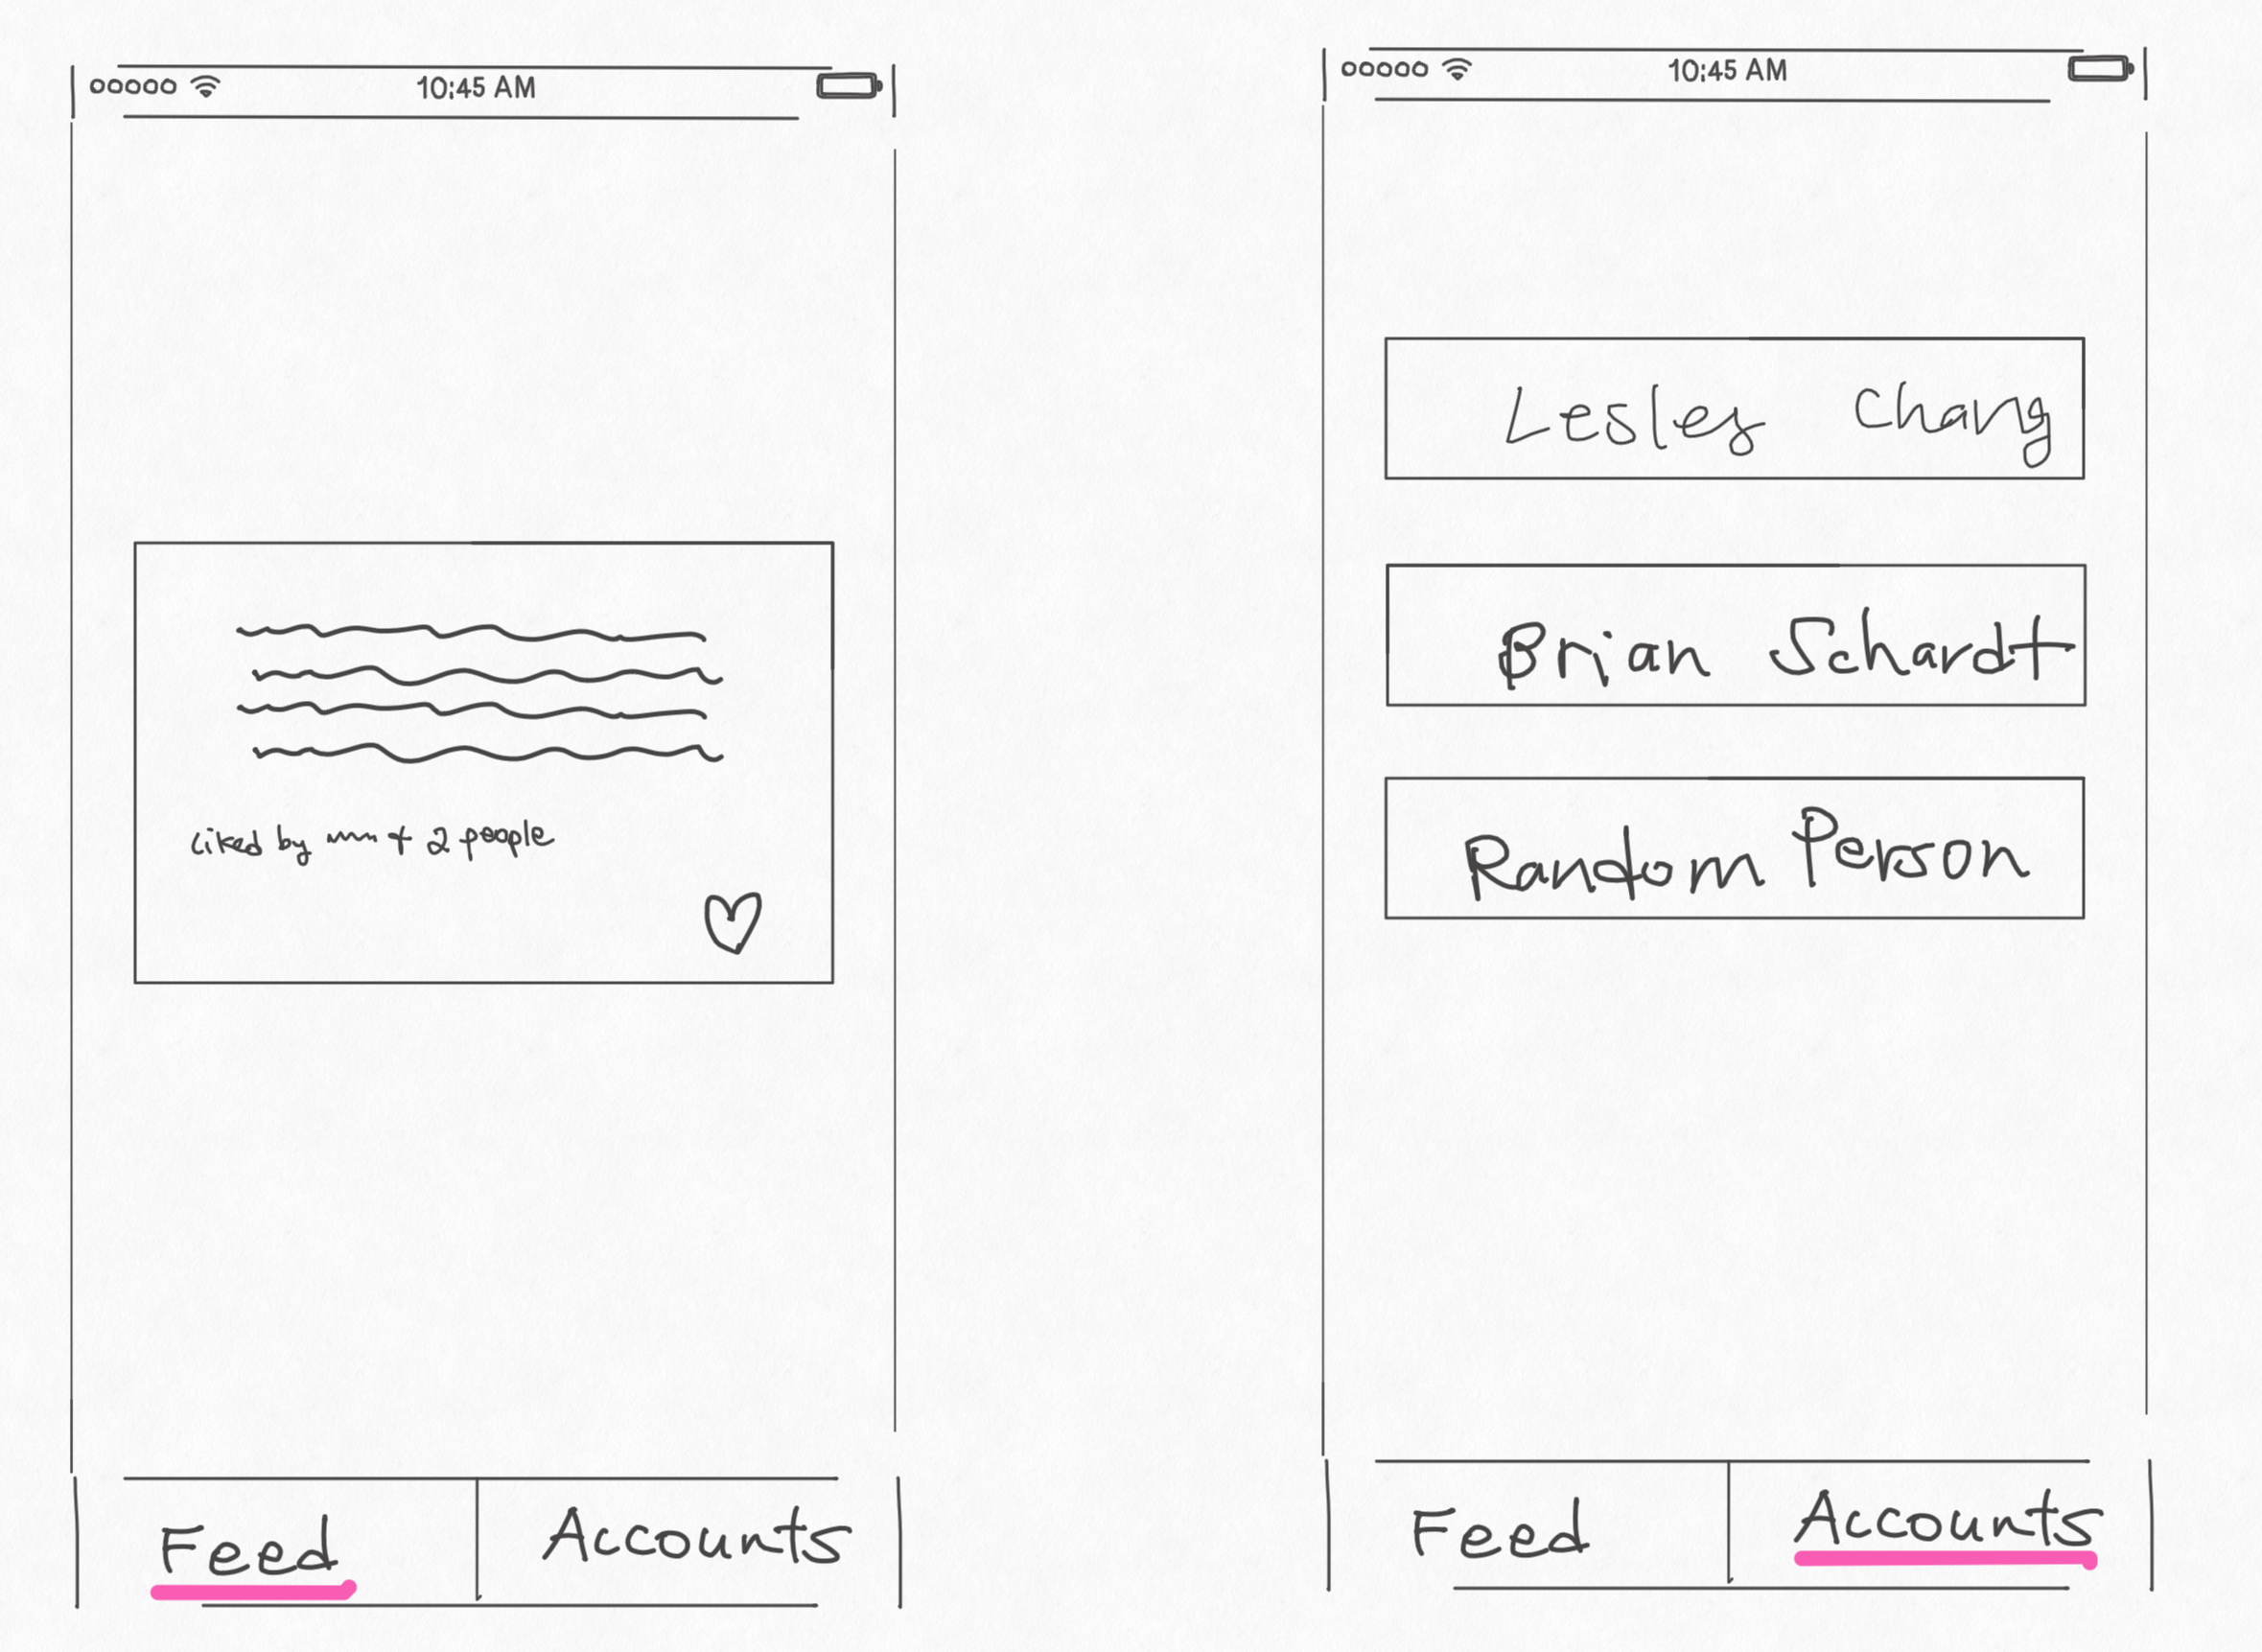 10:45 AM
liked by + 2 people
Feed
Accounts
10:45 AM
Lesley Chang
Brian Schardt
Random Person
Feed
Accounts